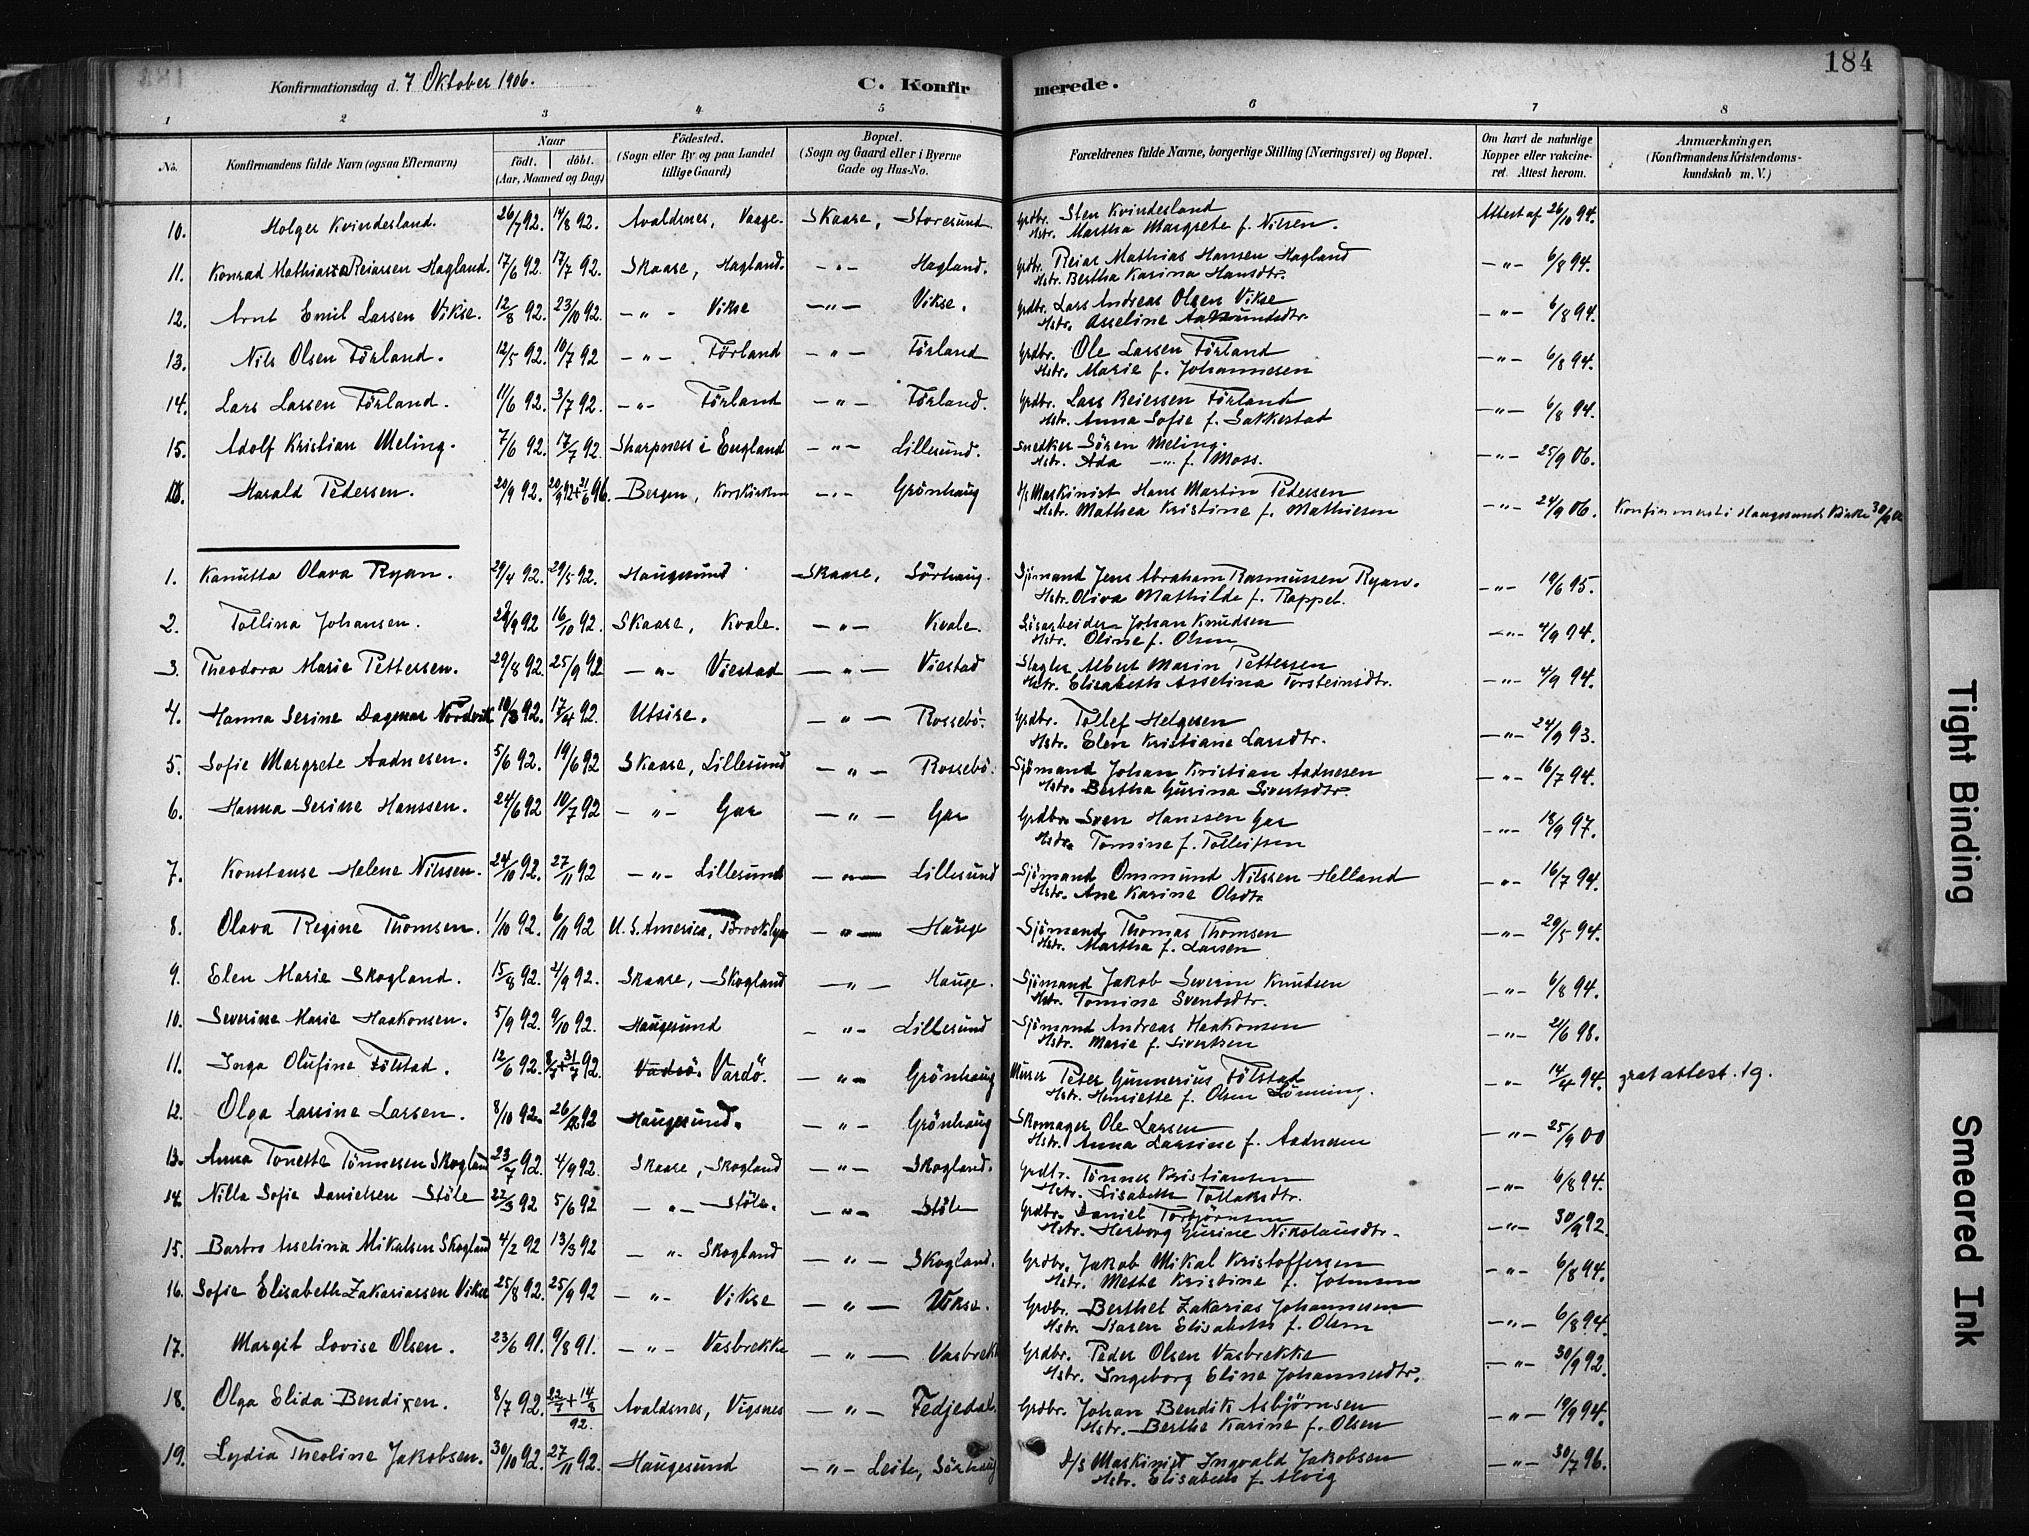 184
Konfirmationsdag d. 7 Oktober 1906.
C. Konfirmerede.
1 2 3 4 5 6 7 8
No. Konfirmandens fulde Navn (ogsaa Efternavn) Naar födt. döbt. (Aar, Maaned og Dag) Födested. (Sogn eller By og paa Landet tillige Gaard) Bopæl. (Sogn og Gaard eller i Byerne Gade og Hus-No. Forældrenes fulde Navne, borgerlige Stilling (Næringsvei) og Bopæl. Om havt de naturlige Kopper eller vakcineret. Attest herom. Anmærkninger. (Konfirmandens Kristendomskundskab m. V.)
10. Holger Kvindesland. 26/7 92. 14/8 92. Avaldsnes, Vaage. Skaare, Storesund Grdbr. Sten Kvindesland
Hstr. Martha Margrete f. Nilsen. Attest af 26/10 94.
11. Konrad Mathias Reiersen Hagland. 17/6 92. 17/7 92. Skaare, Hagland. -"- Hagland. Grdbr. Reier Mathias Hansen Hagland
Hstr. Bertha Karina Hansdtr. -"- 6/8 94.
12. Arnt Emil Larsen Vikse. 12/8 92. 23/10 92. -"- Vikse -"- Vikse. Grdbr. Lars Andreas Olsen Vikse
Hstr. Asseline Aamundsdtr. -"- 6/8 94.
13. Nils Olsen Förland. 12/5 92. 10/7 92 -"- Förland -"- Förland Grdbr. Ole Larsen Förland
Hstr. Marie f. Johannesen -"- 6/8 94.
14. Lars Larsen Förland. 11/6 92. 3/7 92. -"- Förland -"- Förland. Grdbr. Lars Reiersen Förland
Hstr. Anna Sofie f. Sakkestad -"- 6/8 94.
15. Adolf Kristian Meling. 7/6 92. 17/7 92. Sharpness i England -"- Lillesund. Snedker Sören Meling.
Hstr. Ada -"- f. Moss. -"- 25/9 06.
Harald Petersen. 20/9 92. Bergen, Korskirken -"- Grönhaug D/s Maskinist Hans Martin Petersen
Hstr. Mathea Kristine f. Mathiesen -"- 24/9 06. Konfirmert i Haugesunds Kirke 30/9 06
1. Kanutta Olava Ryan. 29/4 92. 29/5 92. Haugesund Skaare, Sörhaug. Sjömand Jens Abraham Rasmussen Ryan.
Hstr. Oliva Mathilde f. Rappel. -"- 19/6 95.
2. Tollina Johansen. 16/10 92. Skaare, Kvale. -"- Kvale. Johan Knudsen
Hstr. Oline f. Olsen -"- 4/9 94.
3. Theodora Marie Pettersen. 29/8 92. 25/9 92 -"- Viestad -"- Viestad Slagter Albert Marin Pettersen
Hstr. Elisabeth Asselina Torsteinsdtr. -"- 4/9 94.
4. Hanna Serine Dagmar Nordvik 10/3 92. 17/4 92. Utsire. -"- Rossebö. Grdbr. Tollef Helgesen
Hstr. Elen Kristiane Larsdtr. -"- 24/9 93.
5. Sofie Margrete Aadnesen. 5/6 92. 19/6 92 Skaare, Lillesund -"- Rossebö. Sjömand Johan Kristian Aadnesen
Hstr. Bertha Gurina Sivertsdtr. -"- 16/7 94.
6. Hanna Serine Hanssen. 24/6 92 10/7 92 -"- Gar -"- Gar Grdbr. Sven Hanssen Gar
Hstr. Tomine f. Tolleifsen -"- 18/9 97.
7. Konstanse Helene Nilssen. 24/10 92. 27/11 92 -"- Lillesund -"- Lillesund Sjömand Ommund Nilssen Helland
Hstr. Ane Karine Olsdtr. -"- 16/7 94.
8. Olava Regine Thomsen. 1/10 92. 6/11 92 U.S. America, Brooklyn -"- Hauge Sjömand Thomas Thomsen
Hstr. Martha f. Larsen -"- 29/5 94.
9. Elen Marie Skogland. 15/8 92. 4/9 92. Skaare, Skogland -"- Hauge. Sjömand Jakob Severin Knudsen
Hstr. Tomine Svendsdtr. -"- 6/8 94.
10. Severine Marie Haakonsen. 5/9 92. 9/10 92. Haugesund -"- Lillesund Sjömand Andreas Haakonsen
Hstr. Marie f. Sivertsen -"- 2/6 98.
11. Inga Olufine Tölstad. 12/6 92. 8/7+31/7 92. Vardö. -"- Grönhaug Murer Peter Gunnerius Tölstad
Hstr. Henriette f. Olsen Lönning. -"- 14/4 94. 
12. Olga Larsine Larsen. 8/10 92. Haugesund. -"- Grönhaug Skomager Ole Larsen
Hstr. Anna Larsine f. Aadnesen -"- 25/9 00
13. Anna Tonette Tönnesen Skogland 23/7 92. 4/9 92. Skaare, Skogland -"- Skogland. Grdbr. Tönnes Kristiansen
Hstr. Lisabeth Tollaksdtr. -"- 6/8 94.
14. Nilla Sofie Danielsen Stöle 22/3 92 5/6 92 -"- Stöle. -"- Stöle Grdbr. Daniel Torbjörnsen
Hstr. Herborg Gurine Nikolausdtr. -"- 30/9 92.
15. Barbro Aselina Mikalsen Skogland 4/2 92 13/3 92 -"- Skogland -"- Skogland. Grdbr. Jakob Mikal Kristoffersen
Hstr. Mette Kristine f. -"- 6/8 94.
16. Sofie Elisabeth Zakariassen Vikse 25/8 92. 25/9 92 -"- Vikse -"- Vikse. Grdbr. Berthel Zakarias Johannesen
Hstr. Karen Elisabeth f. Olsen -"- 6/8 94.
17. Margit Lovise Olsen. 23/6 91. 9/8 91. -"- Vasbrekke -"- Vasbrekke Grdbr. Peder Olsen Vasbrekke
Hstr. Ingeborg Eline Johannesdtr. -"- 30/9 92.
18. Olga Elida Bendixen. 8/7 92. Avaldsnes, Vigsnes -"- Fedjedal. Grdbr. Johan Bendik Asbjörnsen
Hstr. Berthe Karine f. Olsen -"- 19/9 94.
19. Lydia Theoline Jakobsen. 30/10 92. 27/11 92. Haugesund -"- Leite, Sörhaug D/s Maskinist Ingvald Jakobsen
Hstr. Elisabeth f. Alvig -"- 30/7 96.
Tight Binding
Smeared Ink